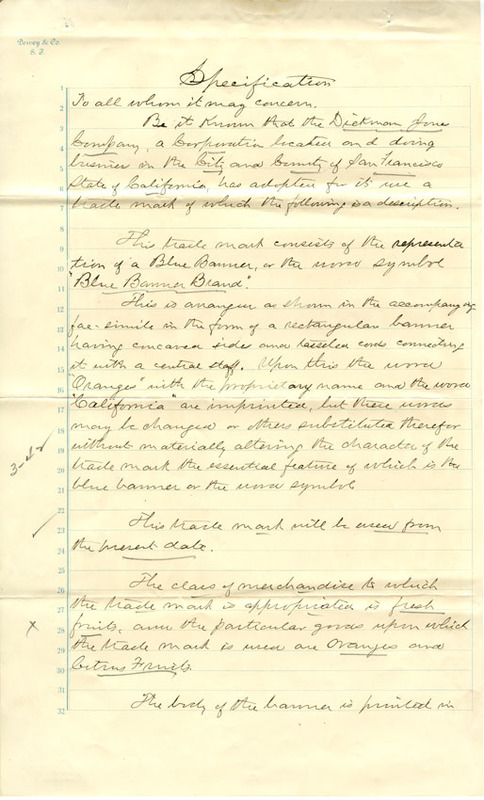 Dewey & Co.
S. F.
Specification
1
2 To all whom it may concern.
3 Be it Known that the Dickman Jones
4 Company, a Corporation located and doing
5 business in the City and County of San Francisco
6 State of California, has adopted for its use a
7 trade mark of which the following is a description.
8
9 This trade mark consists of the representa
10 tion of a Blue Banner, or the word symbol
11 "Blue Banner Brand".
12 This is arranged as shown in the accompanying
13 fac-simile in the form of a rectangular banner
14 having concaved sides and tasseled cords connecting
15 it with a central staff. Upon this the word
16 "Oranges" with the proprietary name and the word
17 "California" are imprinted, but these words
18 may be changed or others substituted therefor
19 without materially altering the character of the
20 trade mark the essential feature of which is the
21 blue banner or the word symbol
22
23 This trade mark will be used from
24 the present date.
25
26 The class of merchandise to which
27 the trade mark is appropriated is fresh
28 fruits, and the particular goods upon which
29 the trade mark is used are Oranges and
30 Citrus Fruits.
31
32 The body of the banner is printed in
x